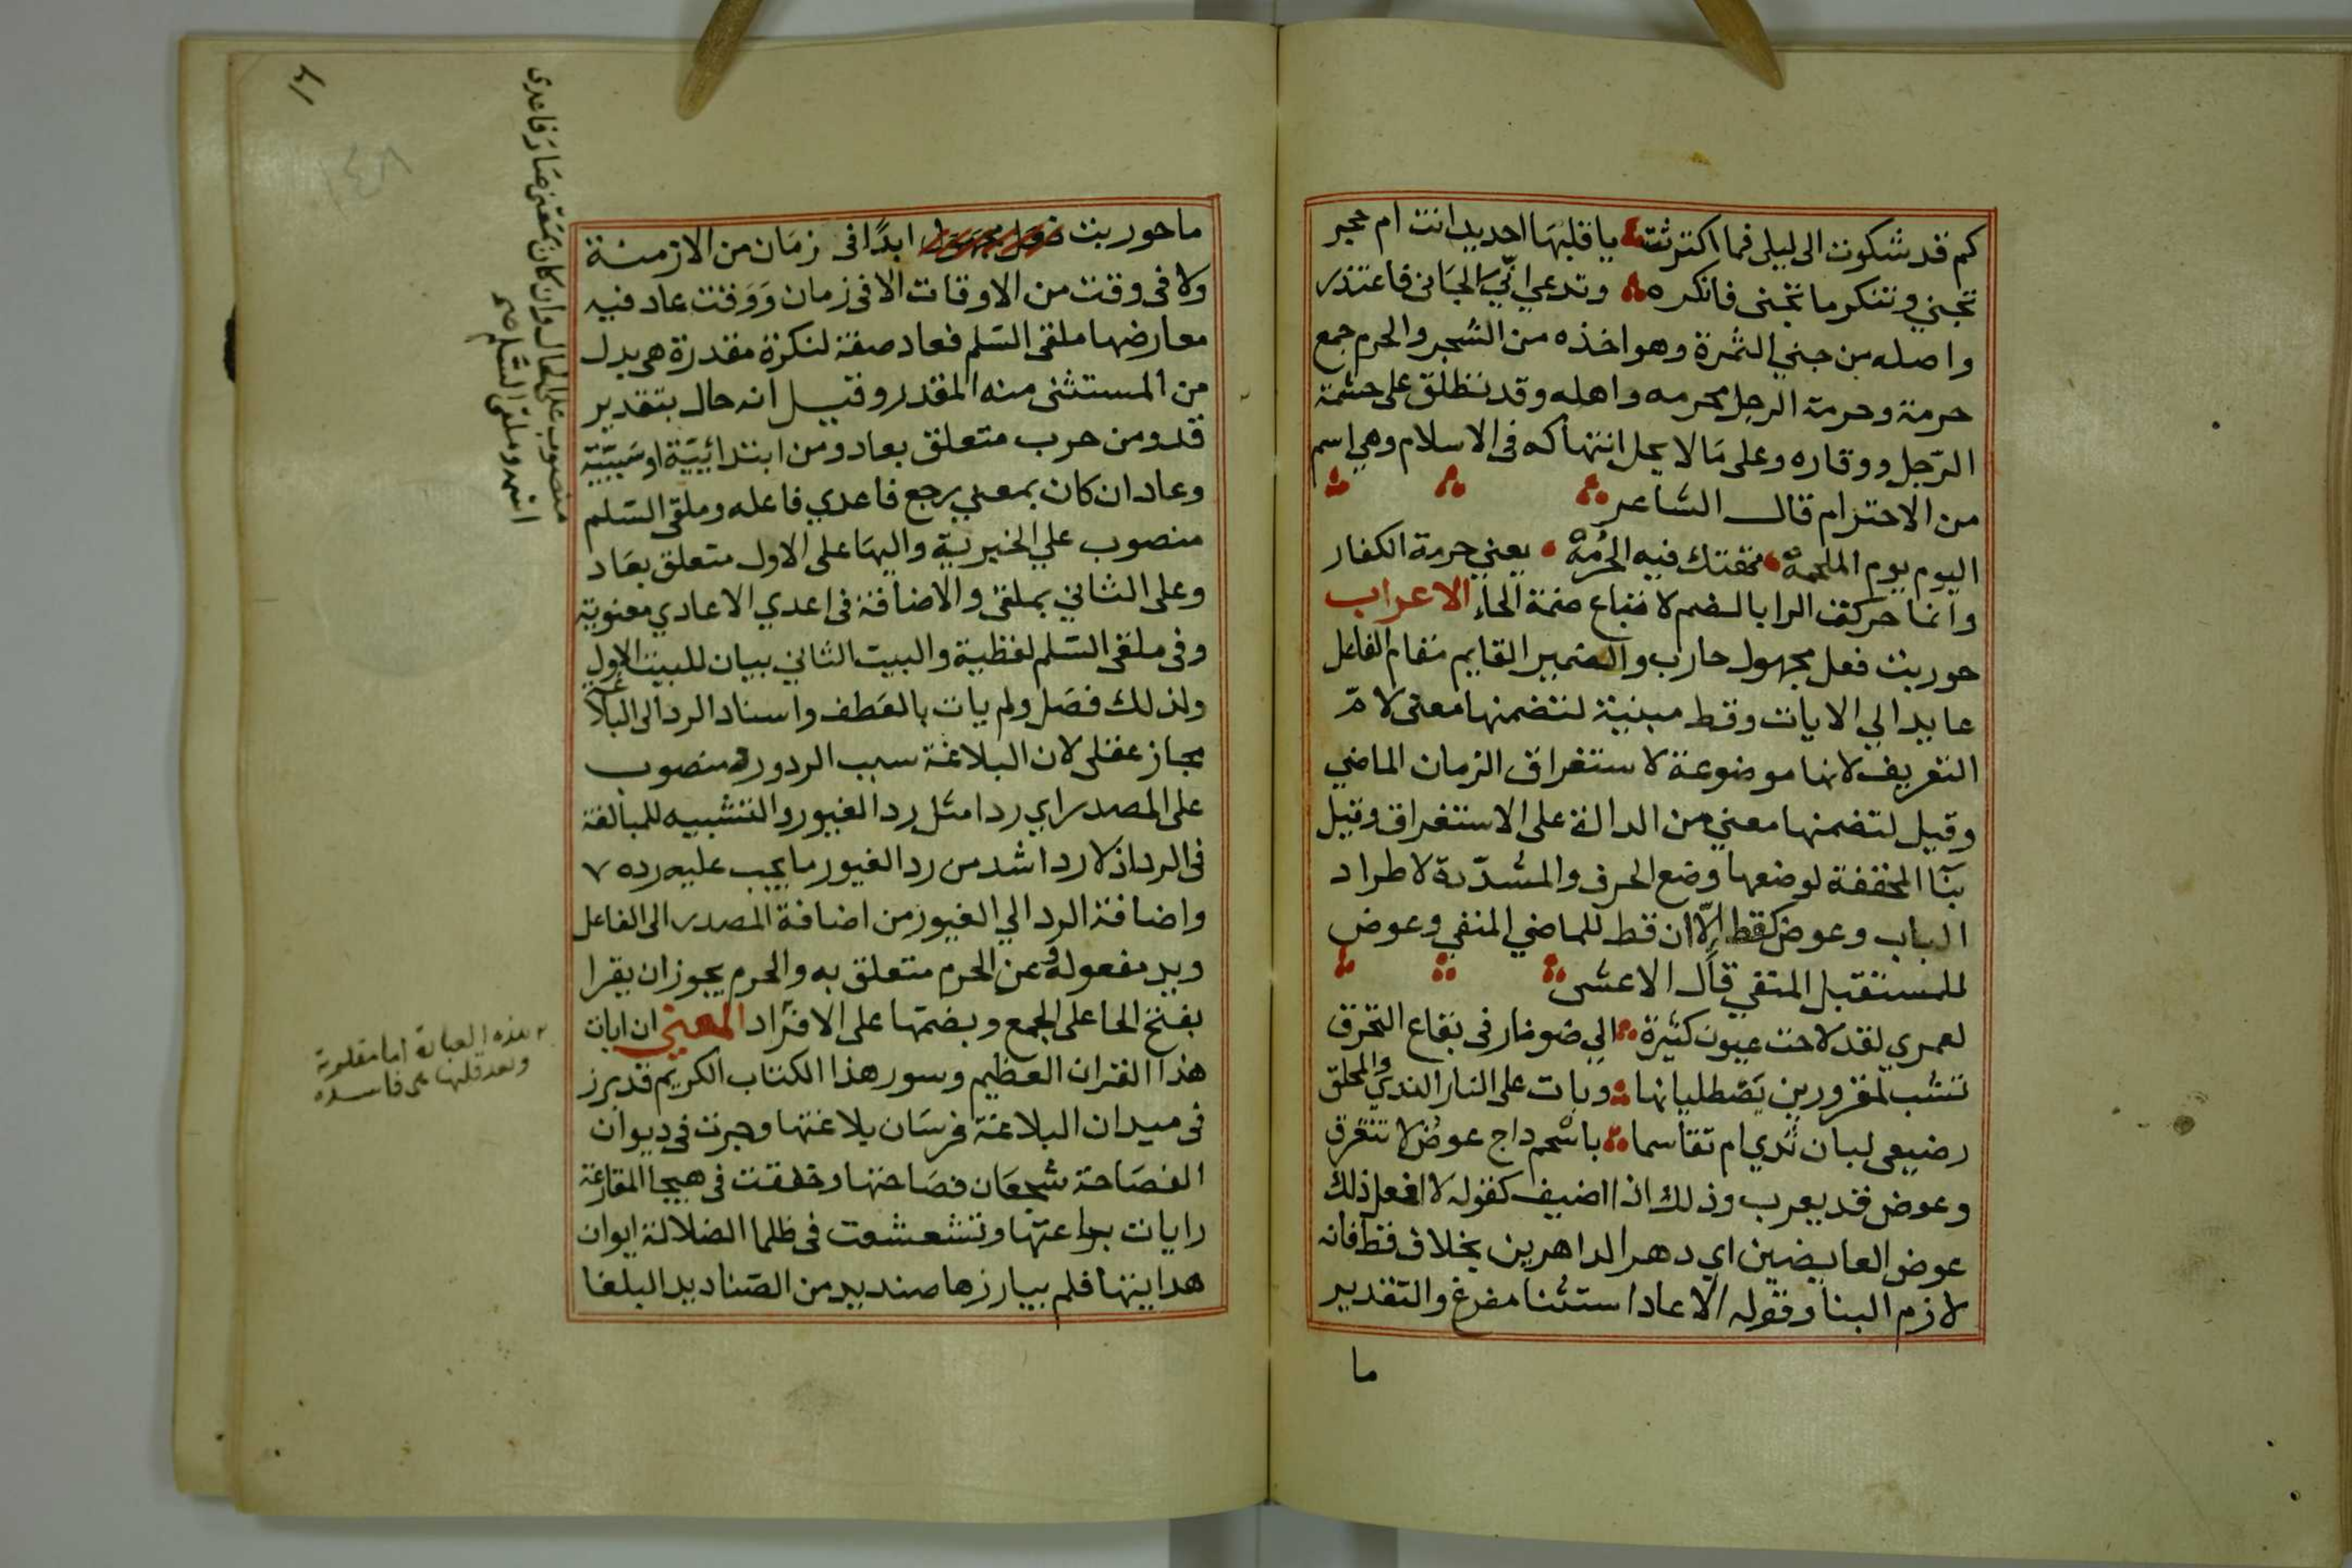 كم قد شكوت الى ليلى فما اكترثت يا قلبها احديد انت ام حجر
تجني وتنكر ما تجنى فانكره وتدعي انّي الجاني فاعتذر
واصله من جني الثمرة وهو اخذه من الشجر والحرم جمع
حرمة وحرمة الرجل محرمه واهله وقد تطلق على حشمة
الرّجل ووقاره وعلى ما لا يحل انتهاكه فى الاسلام وهي اسم
من الاحترام قال الشاعر
اليوم يوم الملحمهْ تهتك فيه الحُرُمهْ يعني حرمة الكفار
وانما حركت الرا بالضم لاتباع ضمة الحاء الاعراب
حوربت فعل مجهول حارب والضمير القايم مقام الفاعل
عايد الي الايات وقط مبنية لتضمنها معنى لام
التعريف لانها موضوعة لاستغراق الزمان الماضي
وقيل لتضمنها معني من الدالة على الاستغراق وقيل
بنا المخففة لوضعها وضع الحرف والمشدّدة لاطراد
الباب وعوض كقط الّا ان قط للماضي المنفي وعوض
للمستقبل المنفي قال الاعشى
لعمري لقد لاحت عيون كثيرة الي ضو نار فى بقاع التحرق
تشب لمقرورين يَصْطليانها وبات على النار الندي والمحلق
رضيعى لبان ثدي ام تقاسما باسْحم داج عوض لا نتفرق
وعوض قد يعرب وذلك اذا اضيف كقوله لا افعل ذلك
عوض العايضين اي دهر الداهرين بخلاف قط فانه
لازم البنا وقوله الا عاد استثنا مفرغ والتقدير
ما
ما حوربت ابدًا فى زمان من الازمنة
ولا فى وقت من الاوقات الا فى زمان وَوَقت عاد فيه
معارضها ملقى السّلم فعاد صفة لنكرة مقدرة هي بدل
من المستثنى منه المقدر وقيل انه حال بتقدير
قد ومن حرب متعلق بعاد ومن ابتدائيّة او سَببيّة
وعاد ان كان بمعني رجع فاعدي فاعله وملقى السّلم
منصوب علي الخبرية واليها على الاول متعلق بعاد
وعلى الثاني بملقى والاضافة فى اعدي الاعادي معنوية
وفى ملقى السّلم لفظية والبيت الثاني بيان للبيت الاول
ولذلك فصَل ولم يات بالعَطف واسناد الرد الى البلاغة
مجاز عقلى لان البلاغة سبب الرد ورد منصوب
على المصدر اي ردا مثل رد الغيور والتشبيه للمبالغة
فى الرد اذ لا رد اشد من رد الغيور ما يجب عليه رده ٧
واضافة الرد الي الغيور من اضافة المصدر الى الفاعل
ويد مفعوله وعن الحرم متعلق به والحرم يجوز ان يقرا
بفتح الحا على الجمع وبضمّها على الافراد المعني ان ايات
هذا القران العظيم وسور هذا الكتاب الكريم قد برز
فى ميدان البلاغة فرسَان بلاغتها وجرت فى ديوان
الفصَاحة شجعَان فصَاحتها وخفقت فى هيجا المقارعة
رايات براعتها وتشعشعت فى ظلما الضلالة ايوان
هدايتها فلم يبارزها صنديد من الصّناديد البلغا
وان كان بمَعْنى صَار فاعدى
منصوب على الحال
اسمه وملقى السّلم
هذه العبارة اما مقلوبة
وبعد قلبها هى فاسده
١٤٨